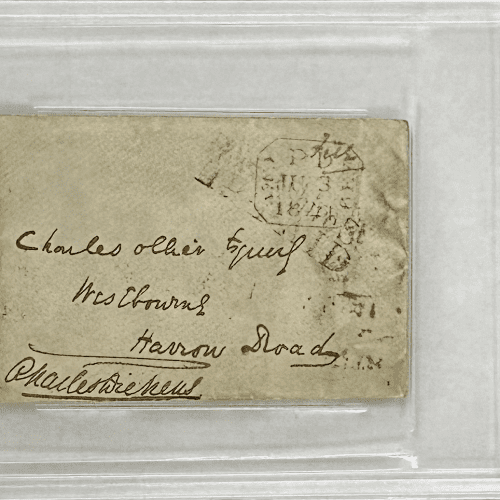 PD
JU 3
184
Charles Ollier Esquire
Westbourne
Harrow Road
Charles Dickens